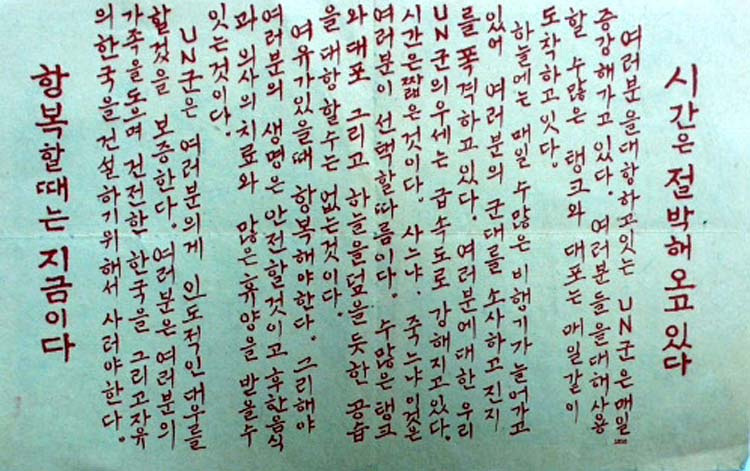 시간은 절박해 오고 있다
여러분을대항하고잇는 UN군은매일
증강해가고 있다. 여러분들을대해사용
할 수많은 탱크와 대포는 매일같이
도착하고잇다.
하늘에는 매일 수많은 비행기가늘어가고
있어 여러분의 군대를 소사하고 진지
를 폭격하고 있다. 여러분에대한 우리
UN군의우세는 급속도로 강해지고있다.
시간은짧은것이다. 사느냐. 죽느냐이것은
여러분이 선택할따름이다. 수많은탱크
와대포 그리고 하늘을덮을듯한 공습
을대항할수는 없는것이다.
여유가있을때 항복해야한다. 그리해야
여러분의 생명은 안전할것이고 후한음식
과 의사의치료와 많은휴양을 받을수
잇는것이다.
UN군은 여러분의게 인도적인대우를
할것을 보증한다. 여러분은 여러분의
가족을도으며 건전한 한국을 그리고자유
의한국을건설하기위해서 사러야한다.
항복할때는 지금이다